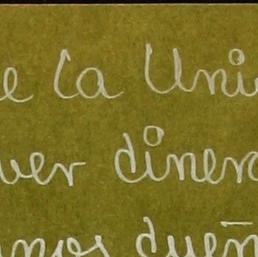 e la Uni
ver diner
mos dueñ